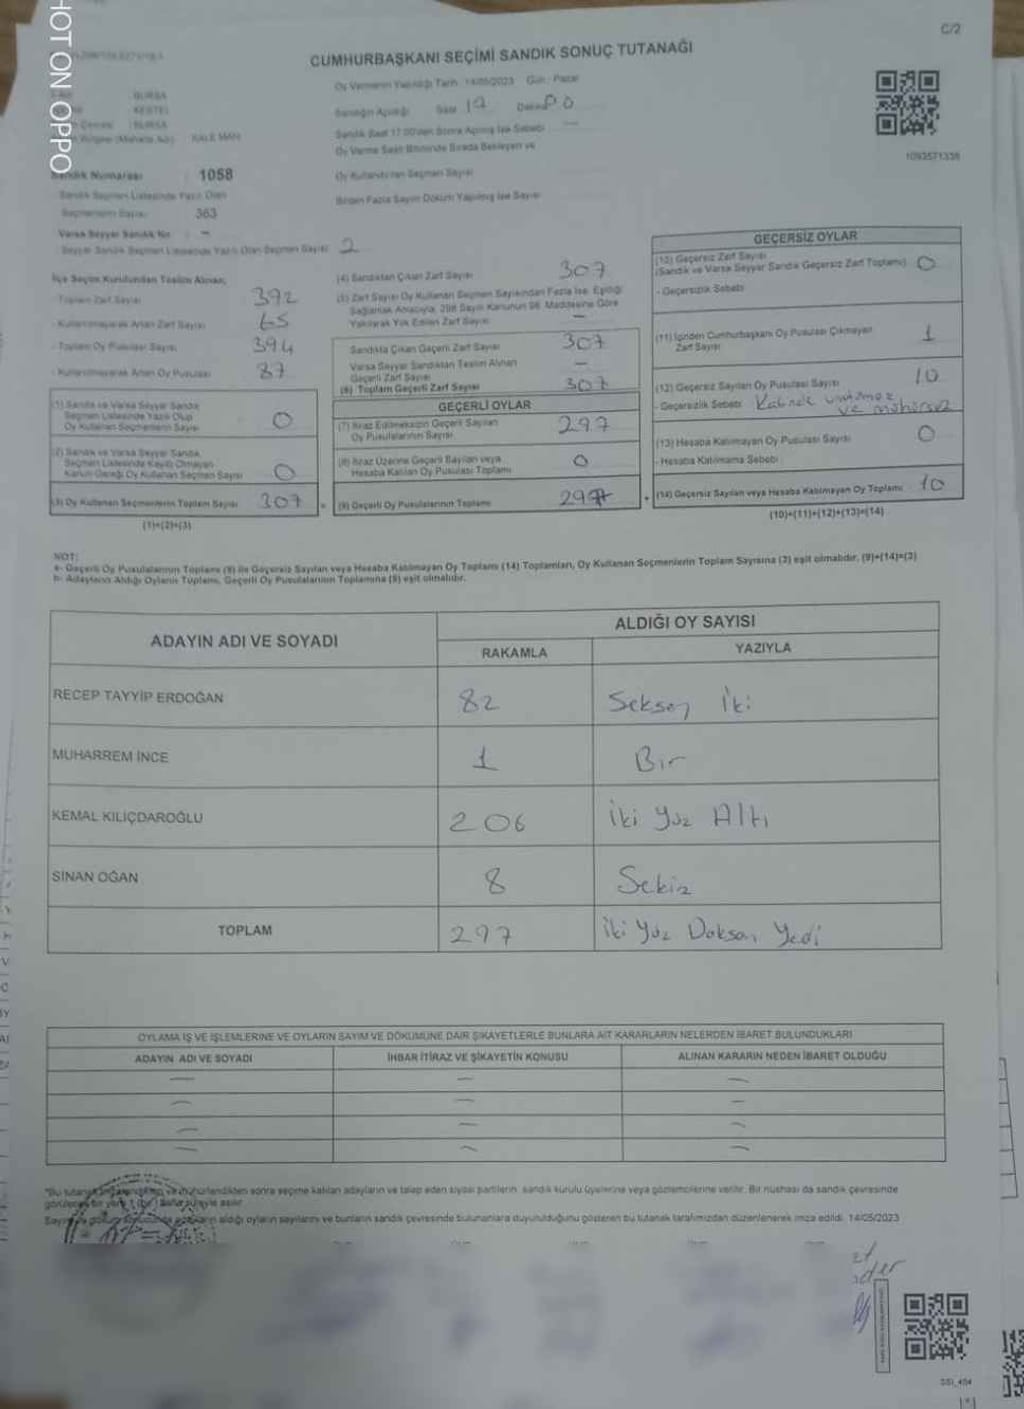 HOT ON OPPO
C/2
CUMHURBAŞKANI SEÇİMİ SANDIK SONUÇ TUTANAĞI
Oy Vermenin Yapıldığı Tarih : 14/05/2023 Gün : Pazar
BURSA
KESTEL
BURSA
KALE MAH.
Sandığın Açıldığı Saat 17
Sandık Saat 17.00'den Sonra Açılmış İse Sebebi
Oy Verme Saati Bitiminde Sırada Bekleyen ve
Oy Kullandırılan Seçmen Sayısı
Birden Fazla Sayım Döküm Yapılmış İse Sayısı
Sandık Numarası 1058
Sandık Seçmen Listesinde Yazılı Olan
Seçmenlerin Sayısı 363
Varsa Seyyar Sandık No –
Seyyar Sandık Seçmen Listesinde Yazılı Olan Seçmen Sayısı 2
İlçe Seçim Kurulundan Teslim Alınan;
Toplam Zarf Sayısı 392
- Kullanılmayarak Artan Zarf Sayısı 65
- Toplam Oy Pusulası Sayısı 394
- Kullanılmayarak Artan Oy Pusulası 87
(1) Sandık ve Varsa Seyyar Sandık
Seçmen Listesinde Yazılı Olup
Oy Kullanan Seçmenlerin Sayısı 0
(2) Sandık ve Varsa Seyyar Sandık
Seçmen Listesinde Kayıtlı Olmayan
Kanun Gereği Oy Kullanan Seçmen Sayısı 0
(3) Oy Kullanan Seçmenlerin Toplam Sayısı 307
(1)+(2)=(3)
(4) Sandıktan Çıkan Zarf Sayısı 307
(5) Zarf Sayısı Oy Kullanan Seçmen Sayısından Fazla İse, Eşitliği
Sağlamak Amacıyla, 298 Sayılı Kanunun 98. Maddesine Göre
Yakılarak Yok Edilen Zarf Sayısı –
Sandıkta Çıkan Geçerli Zarf Sayısı 307
Varsa Seyyar Sandıktan Teslim Alınan
Geçerli Zarf Sayısı –
(6) Toplam Geçerli Zarf Sayısı 307
GEÇERLİ OYLAR
(7) İtiraz Edilmeksizin Geçerli Sayılan
Oy Pusulalarının Sayısı 297
(8) İtiraz Üzerine Geçerli Sayılan veya
Hesaba Katılan Oy Pusulası Toplamı 0
(9) Geçerli Oy Pusulalarının Toplamı 297
1093571338
GEÇERSİZ OYLAR
(10) Geçersiz Zarf Sayısı
(Sandık ve Varsa Seyyar Sandık Geçersiz Zarf Toplamı) 0
- Geçersizlik Sebebi
(11) İçinden Cumhurbaşkanı Oy Pusulası Çıkmayan
Zarf Sayısı 1
(12) Geçersiz Sayılan Oy Pusulası Sayısı 10
- Geçersizlik Sebebi
ve mühürsüz
(13) Hesaba Katılmayan Oy Pusulası Sayısı 0
- Hesaba Katılmama Sebebi
(14) Geçersiz Sayılan veya Hesaba Katılmayan Oy Toplamı 10
(10)+(11)+(12)+(13)=(14)
NOT:
a- Geçerli Oy Pusulalarının Toplamı (9) ile Geçersiz Sayılan veya Hesaba Katılmayan Oy Toplamı (14) Toplamları, Oy Kullanan Seçmenlerin Toplam Sayısına (3) eşit olmalıdır. (9)+(14)=(3)
b- Adayların Aldığı Oyların Toplamı, Geçerli Oy Pusulalarının Toplamına (9) eşit olmalıdır.
ADAYIN ADI VE SOYADI
ALDIĞI OY SAYISI
RAKAMLA YAZIYLA
RECEP TAYYİP ERDOĞAN 82 Seksen İki
MUHARREM İNCE 1 Bir
KEMAL KILIÇDAROĞLU 206 İki Yüz Altı
SİNAN OĞAN 8 Sekiz
TOPLAM 297 İki Yüz Doksan Yedi
OYLAMA İŞ VE İŞLEMLERİNE VE OYLARIN SAYIM VE DÖKÜMÜNE DAİR ŞİKAYETLERLE BUNLARA AİT KARARLARIN NELERDEN İBARET BULUNDUKLARI
ADAYIN ADI VE SOYADI İHBAR İTİRAZ VE ŞİKAYETİN KONUSU ALINAN KARARIN NEDEN İBARET OLDUĞU
sonra seçime katılan adayların ve talep eden siyasi partilerin, sandık kurulu üyelerine veya gözlemcilerine verilir. Bir nüshası da sandık çevresinde
aldığı oyların sayılarını ve bunların sandık çevresinde bulunanlara duyurulduğunu gösteren bu tutanak tarafımızdan düzenlenerek imza edildi. 14/05/2023
SSI_404